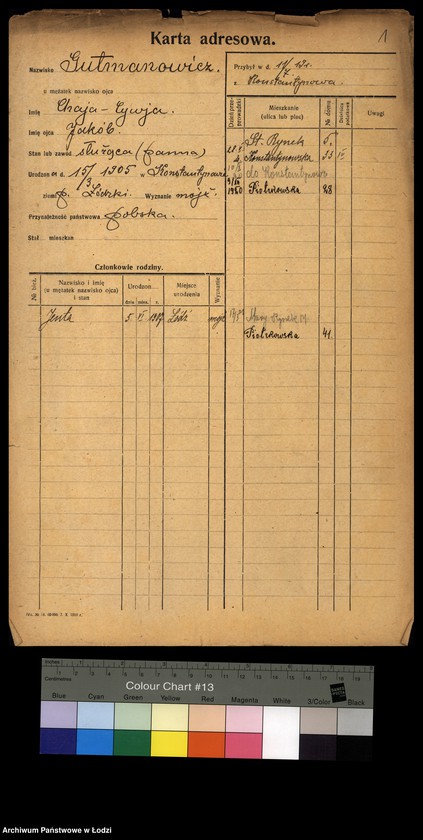 Karta adresowa.
1
Nazwisko Gutmanowicz.
u mężatek nazwisko ojca
Imię Chaja-Cywja.
Imię ojca Jakób.
Stan lub zawód służąca (panna)
Urodzon d. 15/3 1905 w Konstantynowie
ziemi p. Łódzki. Wyznanie mojż.
Przynależność państwowa polska.
Stał mieszkan
Przybył w d.
z Konstantynowa
Dzień przeprowadzki
Mieszkanie (ulica lub plac)
№ domu
Dzielnica
Uwagi
St. Rynek 6.
Konstantynowska 33 II
do Konstantynow
1930 Piotrkowska 28
Członkowie rodziny.
№ bież.
Nazwisko i imię (u mężatek nazwisko ojca) i stan
Urodzone
dnia mies. r.
Miejsce urodzenia
Wyznanie
Jenta 5 VI 1907 Łódź mojż.
Piotrkowska 41.
Inches
Centimetres
Colour Chart #13
Blue Cyan Green Yellow Red Magenta White 3/Color Black
Archiwum Państwowe w Łodzi